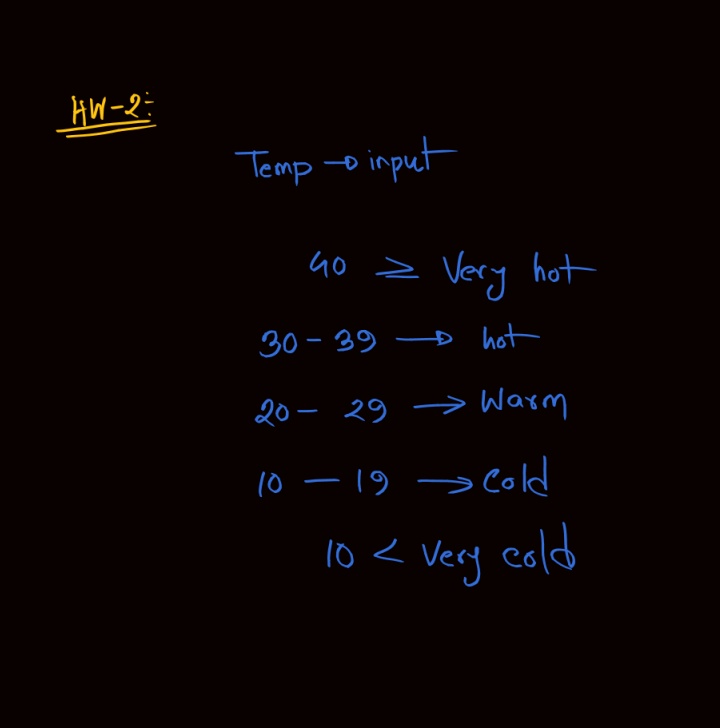 HW-2:
Temp → input
40 ≥ Very hot
30 - 39 → hot
20 - 29 → Warm
10 - 19 → Cold
10 < Very cold